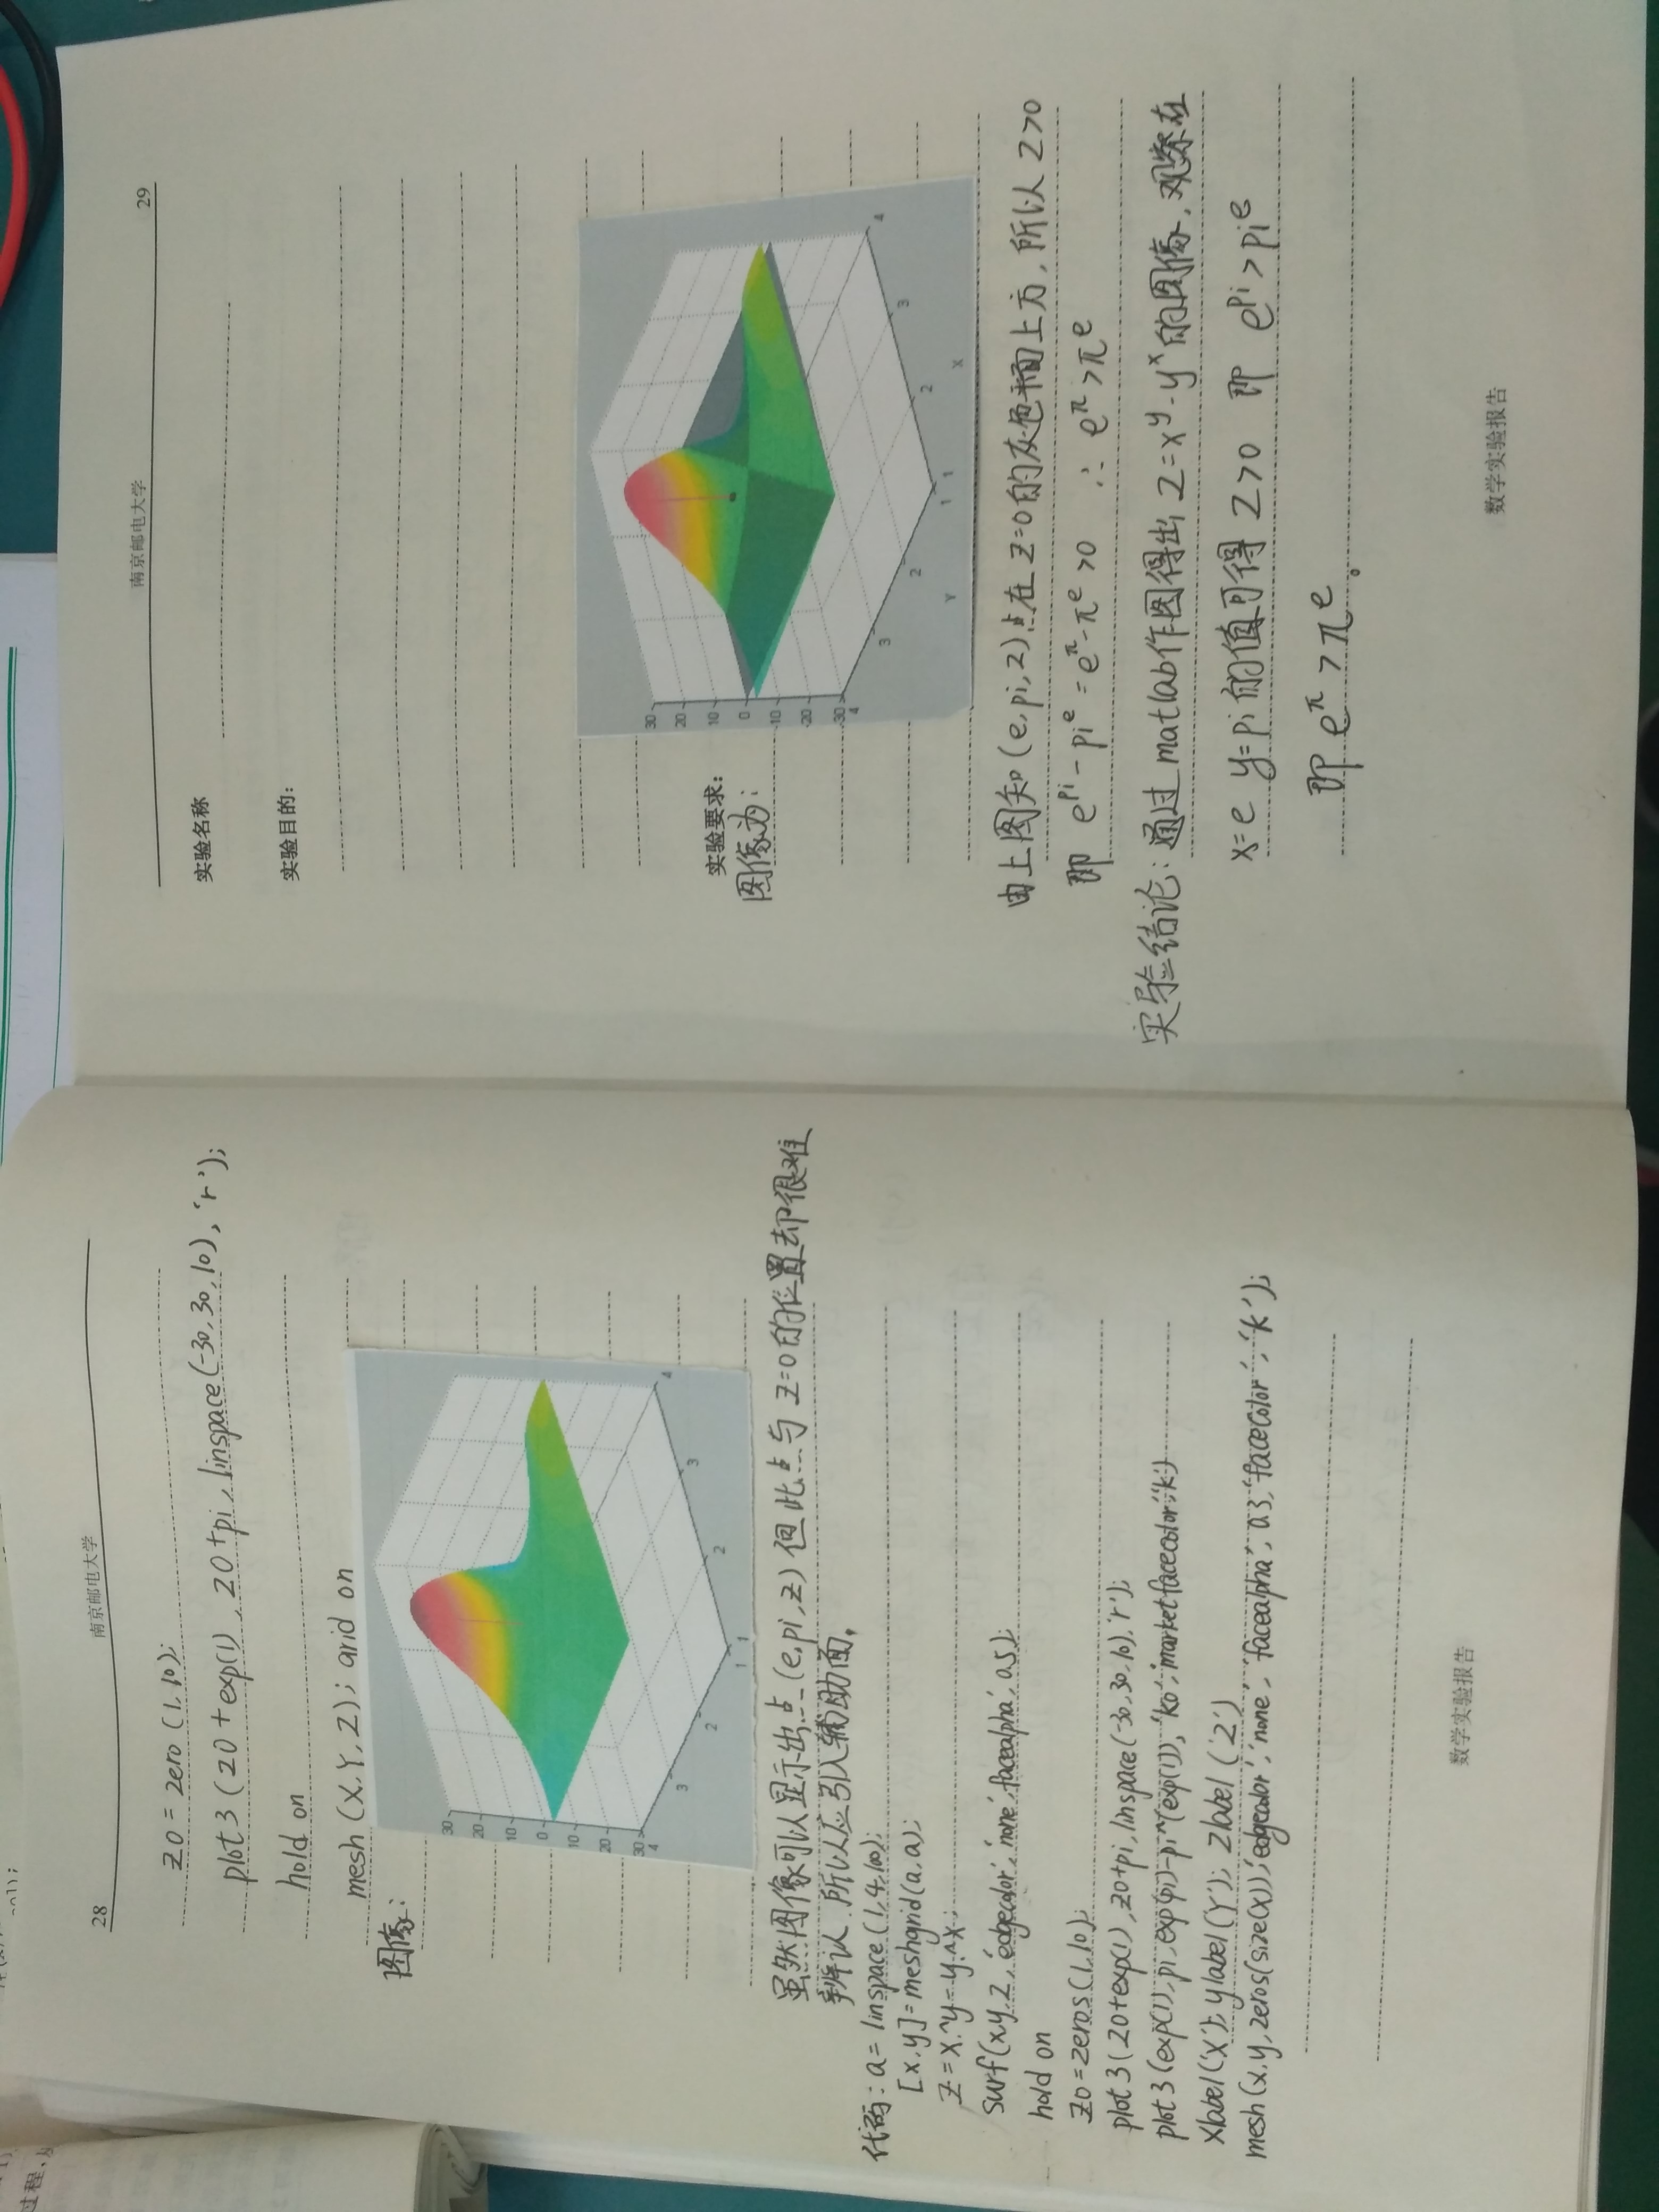 过程,
28
南京邮电大学
z0 = zero (1,10);
plot3 (z0 + exp(1), z0 + pi, linspace(-30, 30, 10), 'r');
hold on
mesh (X, Y, Z); grid on
图像:
30
20
10
0
10
20
30
4
3
2
1
1
2
3
4
虽然图像可以显示出点 (e, pi, z) 但此点与 Z=0 的位置却很难
辨认.所以应引入辅助面。
代码: a = linspace (1,4,100);
[x,y]=meshgrid(a,a);
Z = x.^y-y.^x;
surf(x,y,z,'edgecolor','none',facealpha',0.5);
hold on
z0=zeros(1,10);
plot3(z0+exp(1),z0+pi,linspace(-30,30,10),'r');
plot3(exp(1),pi,exp(pi)-pi^(exp(1)),'ko','marketfacecolor','k')
xlabel('X'); ylabel('Y'); zlabel('Z')
mesh(x,y,zeros(size(x)),'edgecolor','none','facealpha',0.3,'faceColor','k');
数学实验报告
南京邮电大学
29
实验名称
实验目的:
实验要求:
图像为:
30
20
10
0
-10
-20
-30
4
3
2
1
Y
1
2
3
4
X
由上图知 (e, pi, z) 点在 Z=0 的灰色平面上方,所以 Z>0
即 e^pi - pi^e = e^π - π^e > 0 ∴ e^π > π^e
实验结论: 通过 matlab 作图得出 Z = x^y - y^x 的图像,观察在
x=e y=pi 的值可得 Z>0 即 e^pi > pi^e
即 e^π > π^e。
数学实验报告